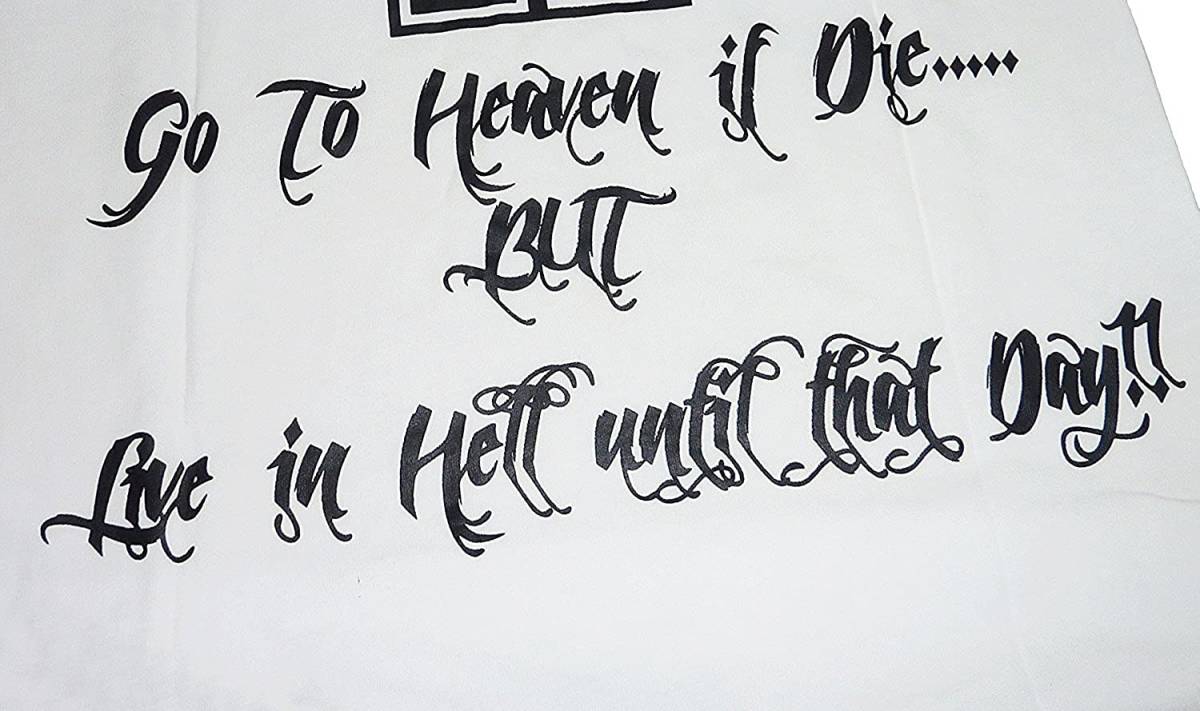 Go To Heaven if Die.....
BUT
Live in Hell until that Day!!